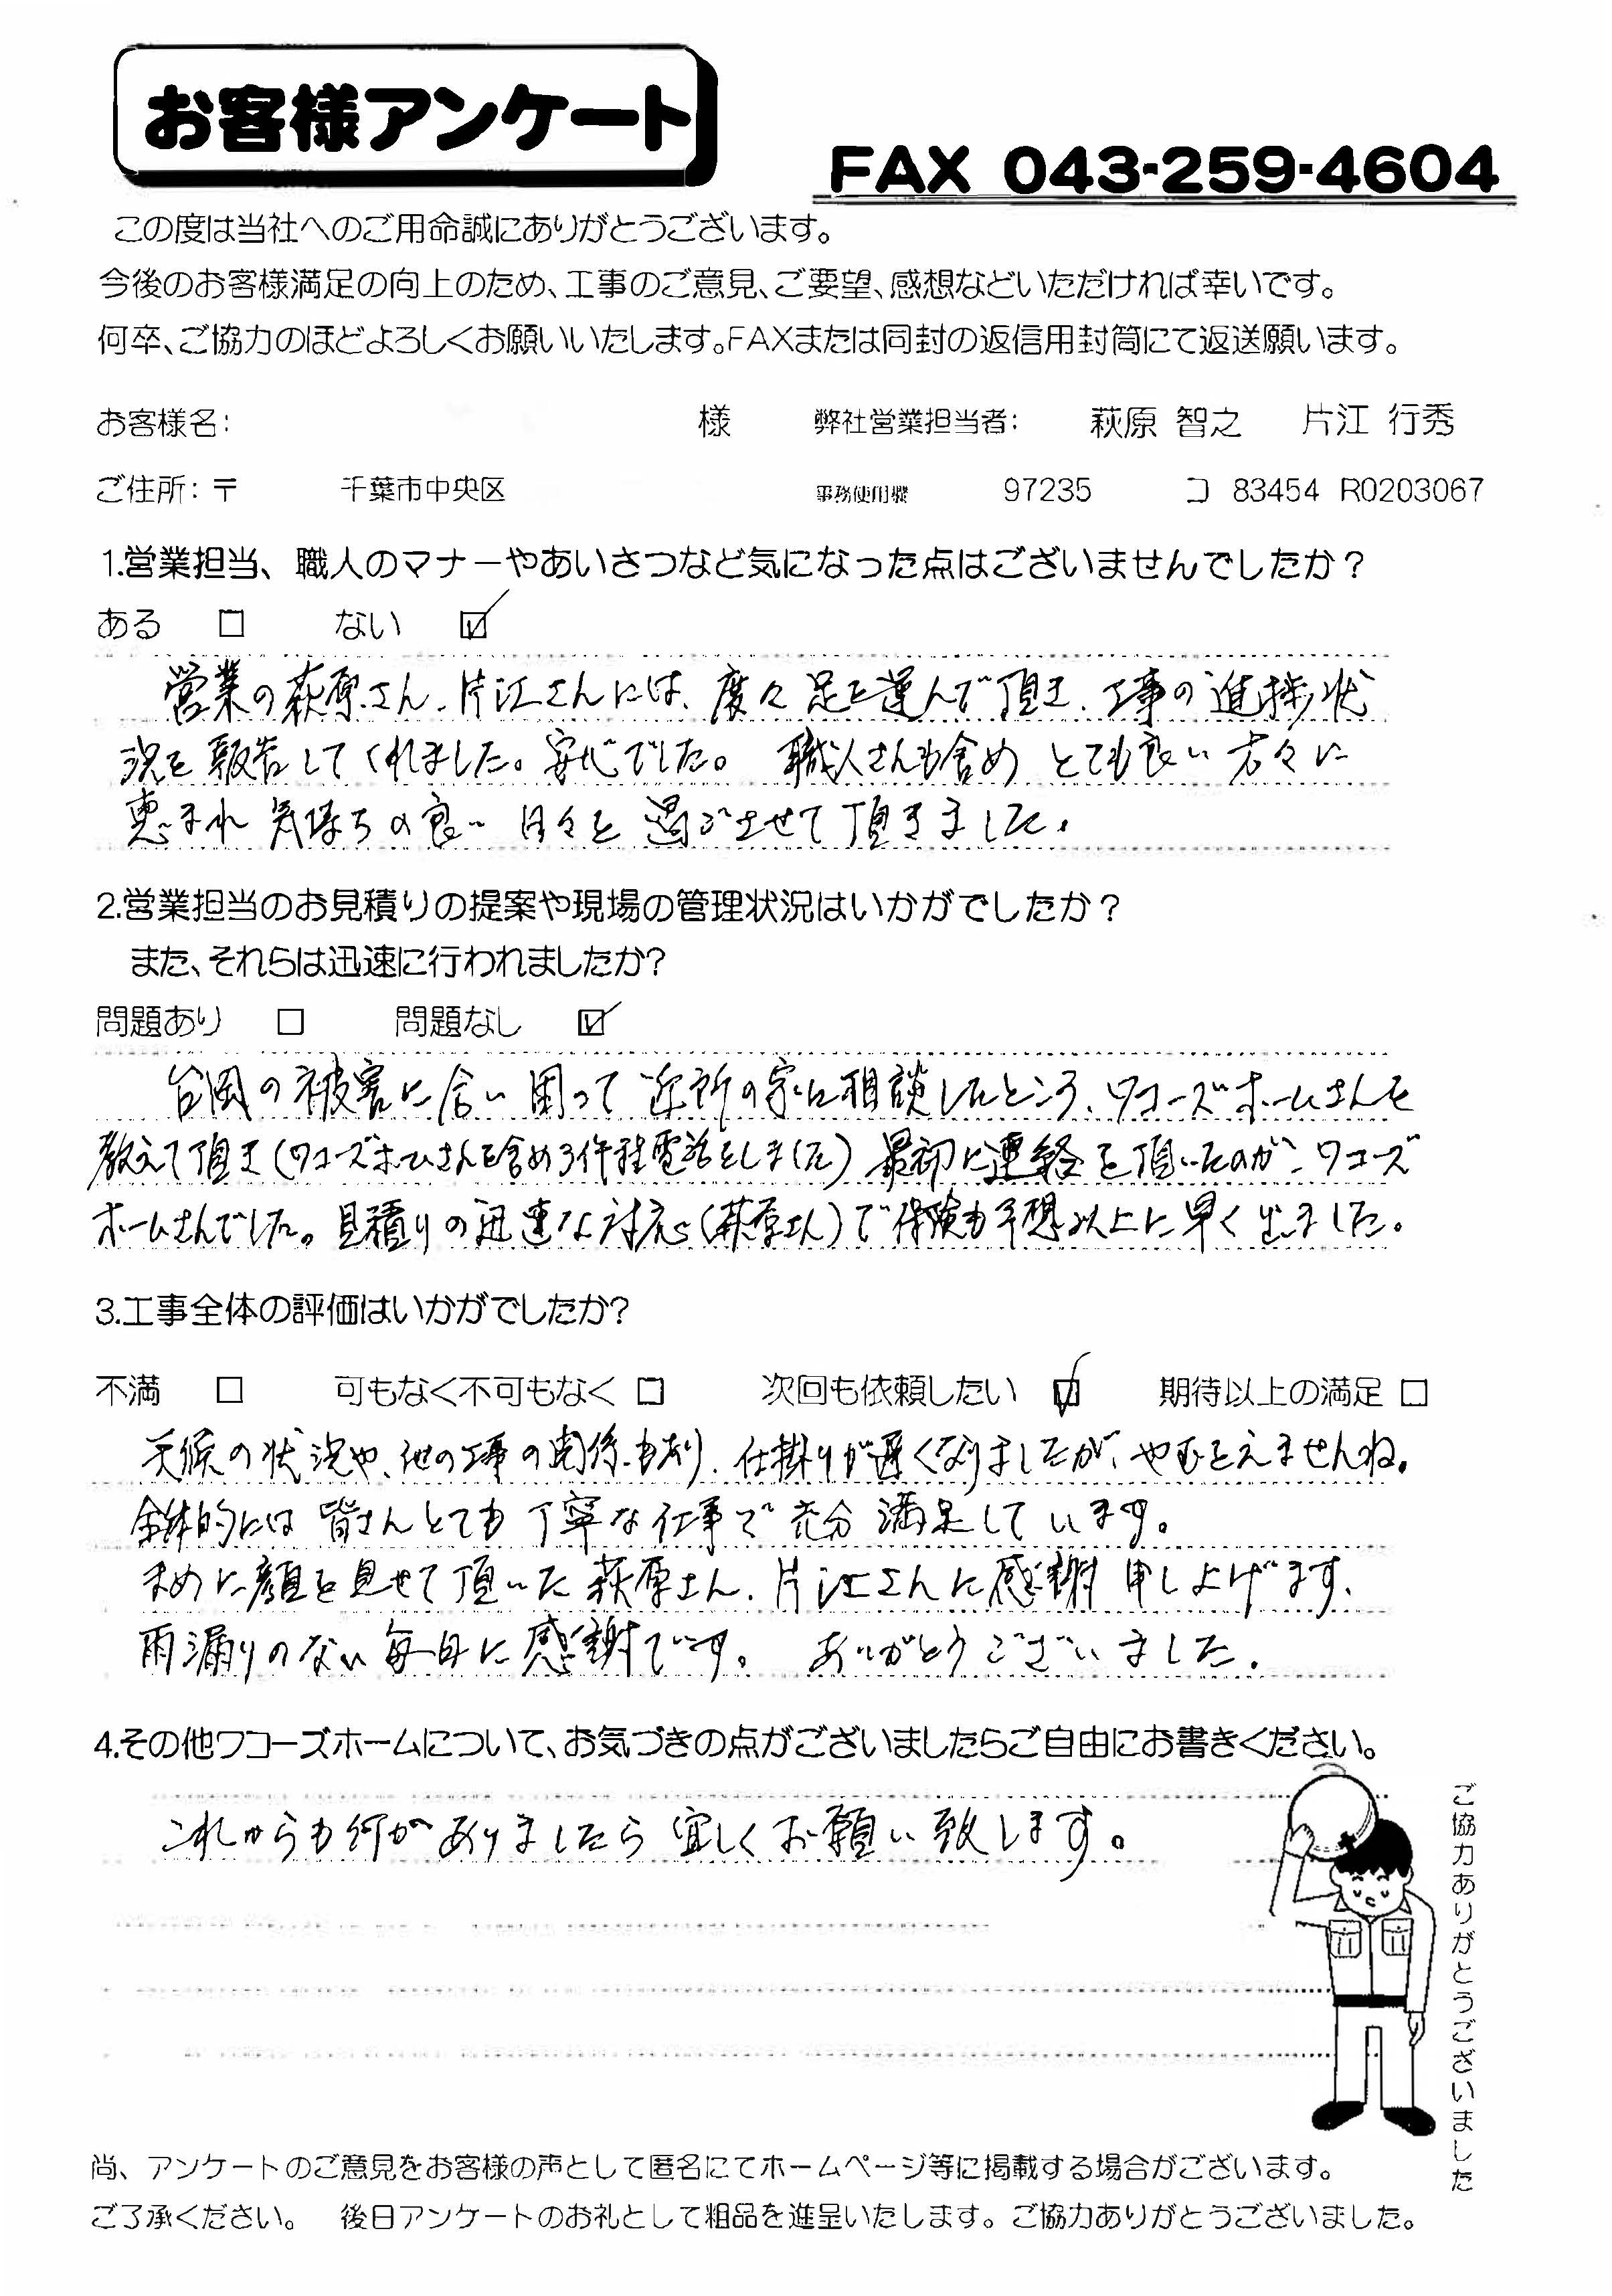 お客様アンケート
FAX 043-259-4604
この度は当社へのご用命誠にありがとうございます。
今後のお客様満足の向上のため、工事のご意見、ご要望、感想などいただければ幸いです。
何卒、ご協力のほどよろしくお願いいたします。FAXまたは同封の返信用封筒にて返送願います。
お客様名: 様 弊社営業担当者: 萩原 智之 片江 行秀
ご住所: 〒 千葉市中央区 事務使用欄 97235 コ 83454 R0203067
1.営業担当、職人のマナーやあいさつなど気になった点はございませんでしたか？
ある □ ない ☑
営業の萩原さん、片江さんには、度々足を運んで頂き、工事の進捗状
況を報告してくれました。安心でした。 職人さんも含め とても良い方々に
恵まれ 気持ちの良い 日々を 過ごさせて頂きました。
2.営業担当のお見積りの提案や現場の管理状況はいかがでしたか？
また、それらは迅速に行われましたか?
問題あり □ 問題なし ☑
台風の被害に合い 困って 近所の家に相談したところ、ワコーズホームさんを
教えて頂き(ワコーズホームさんを含め3件程電話をしました)最初に連絡を頂いたのが、ワコーズ
ホームさんでした。見積りの迅速な対応(萩原さん)で保険も予想以上に早く出ました。
3.工事全体の評価はいかがでしたか?
不満 □ 可もなく不可もなく □ 次回も依頼したい ☑ 期待以上の満足 □
天候の状況や、他の工事の関係もあり、仕掛りが遅くなりましたが、やむをえませんね。
全体的には 皆さんとても 丁寧な仕事で 充分 満足して います。
まめに顔を見せて頂いた萩原さん、片江さんに感謝 申し上げます、
雨漏りのない毎日に感謝です。 ありがとうございました。
4.その他ワコーズホームについて、お気づきの点がございましたらご自由にお書きください。
これからも何かありましたら 宜しくお願い致します。
ご協力ありがとうございました
尚、アンケートのご意見をお客様の声として匿名にてホームページ等に掲載する場合がございます。
ご了承ください。 後日アンケートのお礼として粗品を進呈いたします。ご協力ありがとうございました。